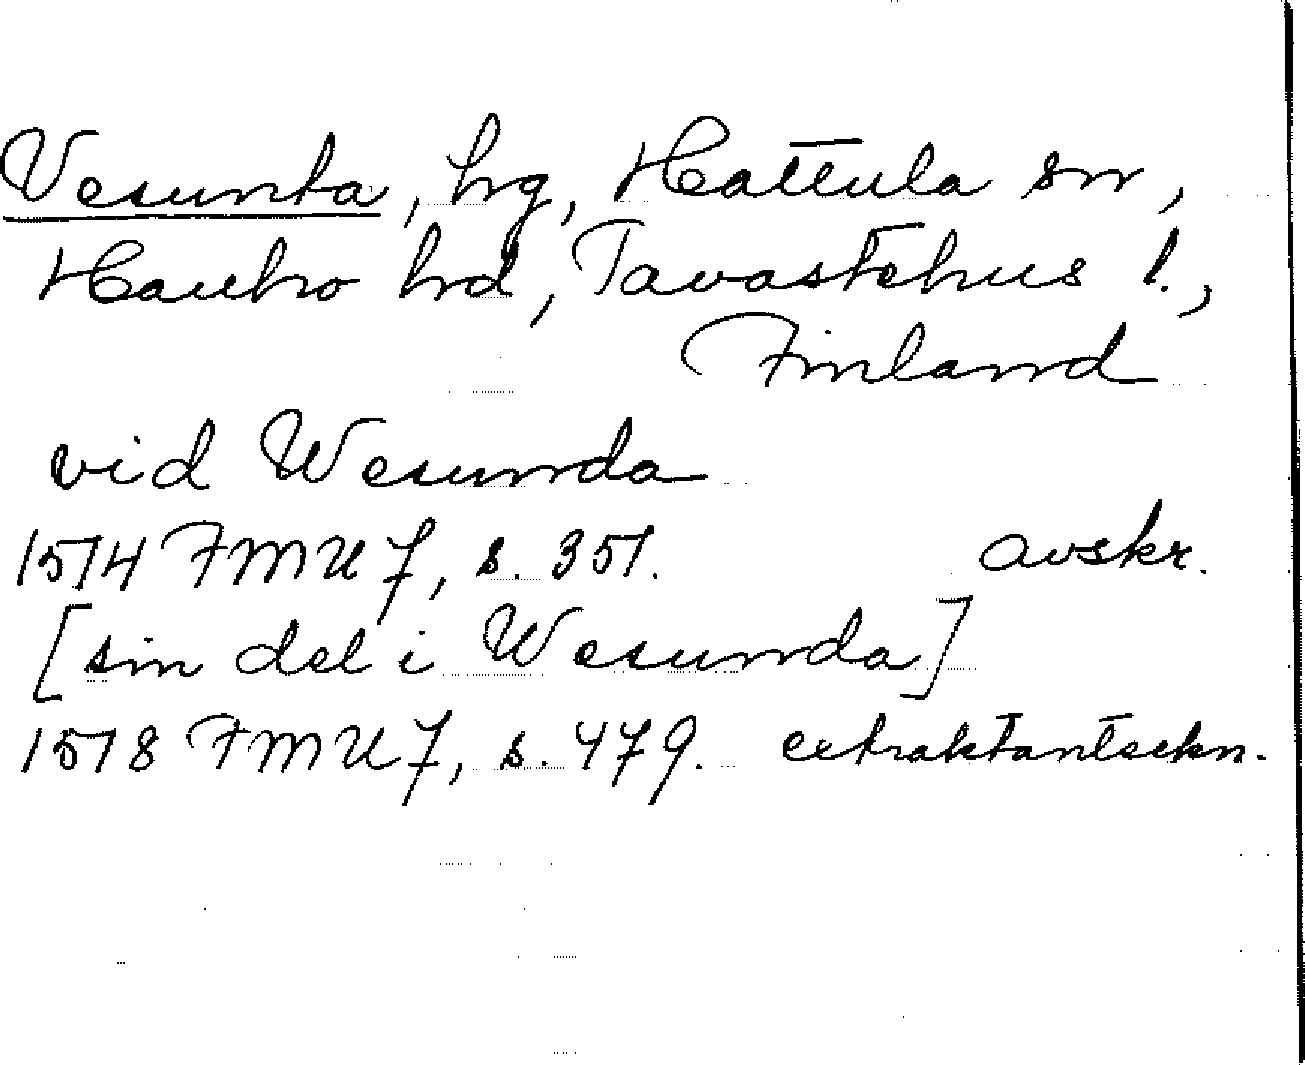 Vesunta, hg, Hattula sn,
Hauho hd, Tavastehus l.,
Finland
vid Wesunda
1514 FMU 7, s. 351. avskr.
[sin del i Wesunda]
1518 FMU 7, s. 479. extraktantekn.